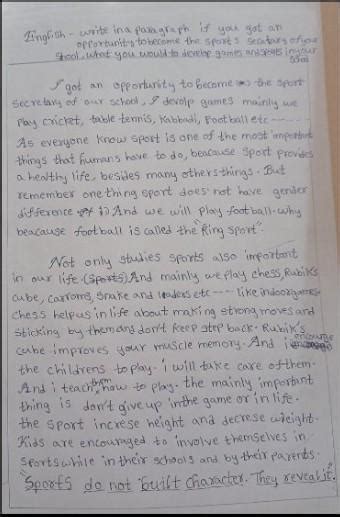 English - write in a paragraph if you got an
opportunity to become the sport's secratary of your
school, what you would to develop games and sports in your
school
I got an opportunity to become the sport
secretary of our school, I devolp games mainly we
Play cricket, table tennis, kabbadi, Football etc ----
As everyone know sport is one of the most important
things that humans have to do, beacause sport provides
a healthy life, besides many others things. But
remember one thing sport does not have gender
difference And we will play football. why
beacause football is called the "King sport".
Not only studies sports also important
in our life. (Sports) And mainly we play chess, Rubik's
cube, carroms, Snake and leaders etc --- like indoor games
chess help us in life about making strong moves and
sticking by them and don't keep step back. Rubik's
cube improves your muscle memory. And i encourge
the childrens to play. i will take care of them.
And i teach them how to play. the mainly important
thing is don't give up in the game or in life.
the sport increse height and decrese weight.
Kids are encouraged to involve themselves in
sports while in their schools and by their parents.
"Sports do not built character. They reveal it."